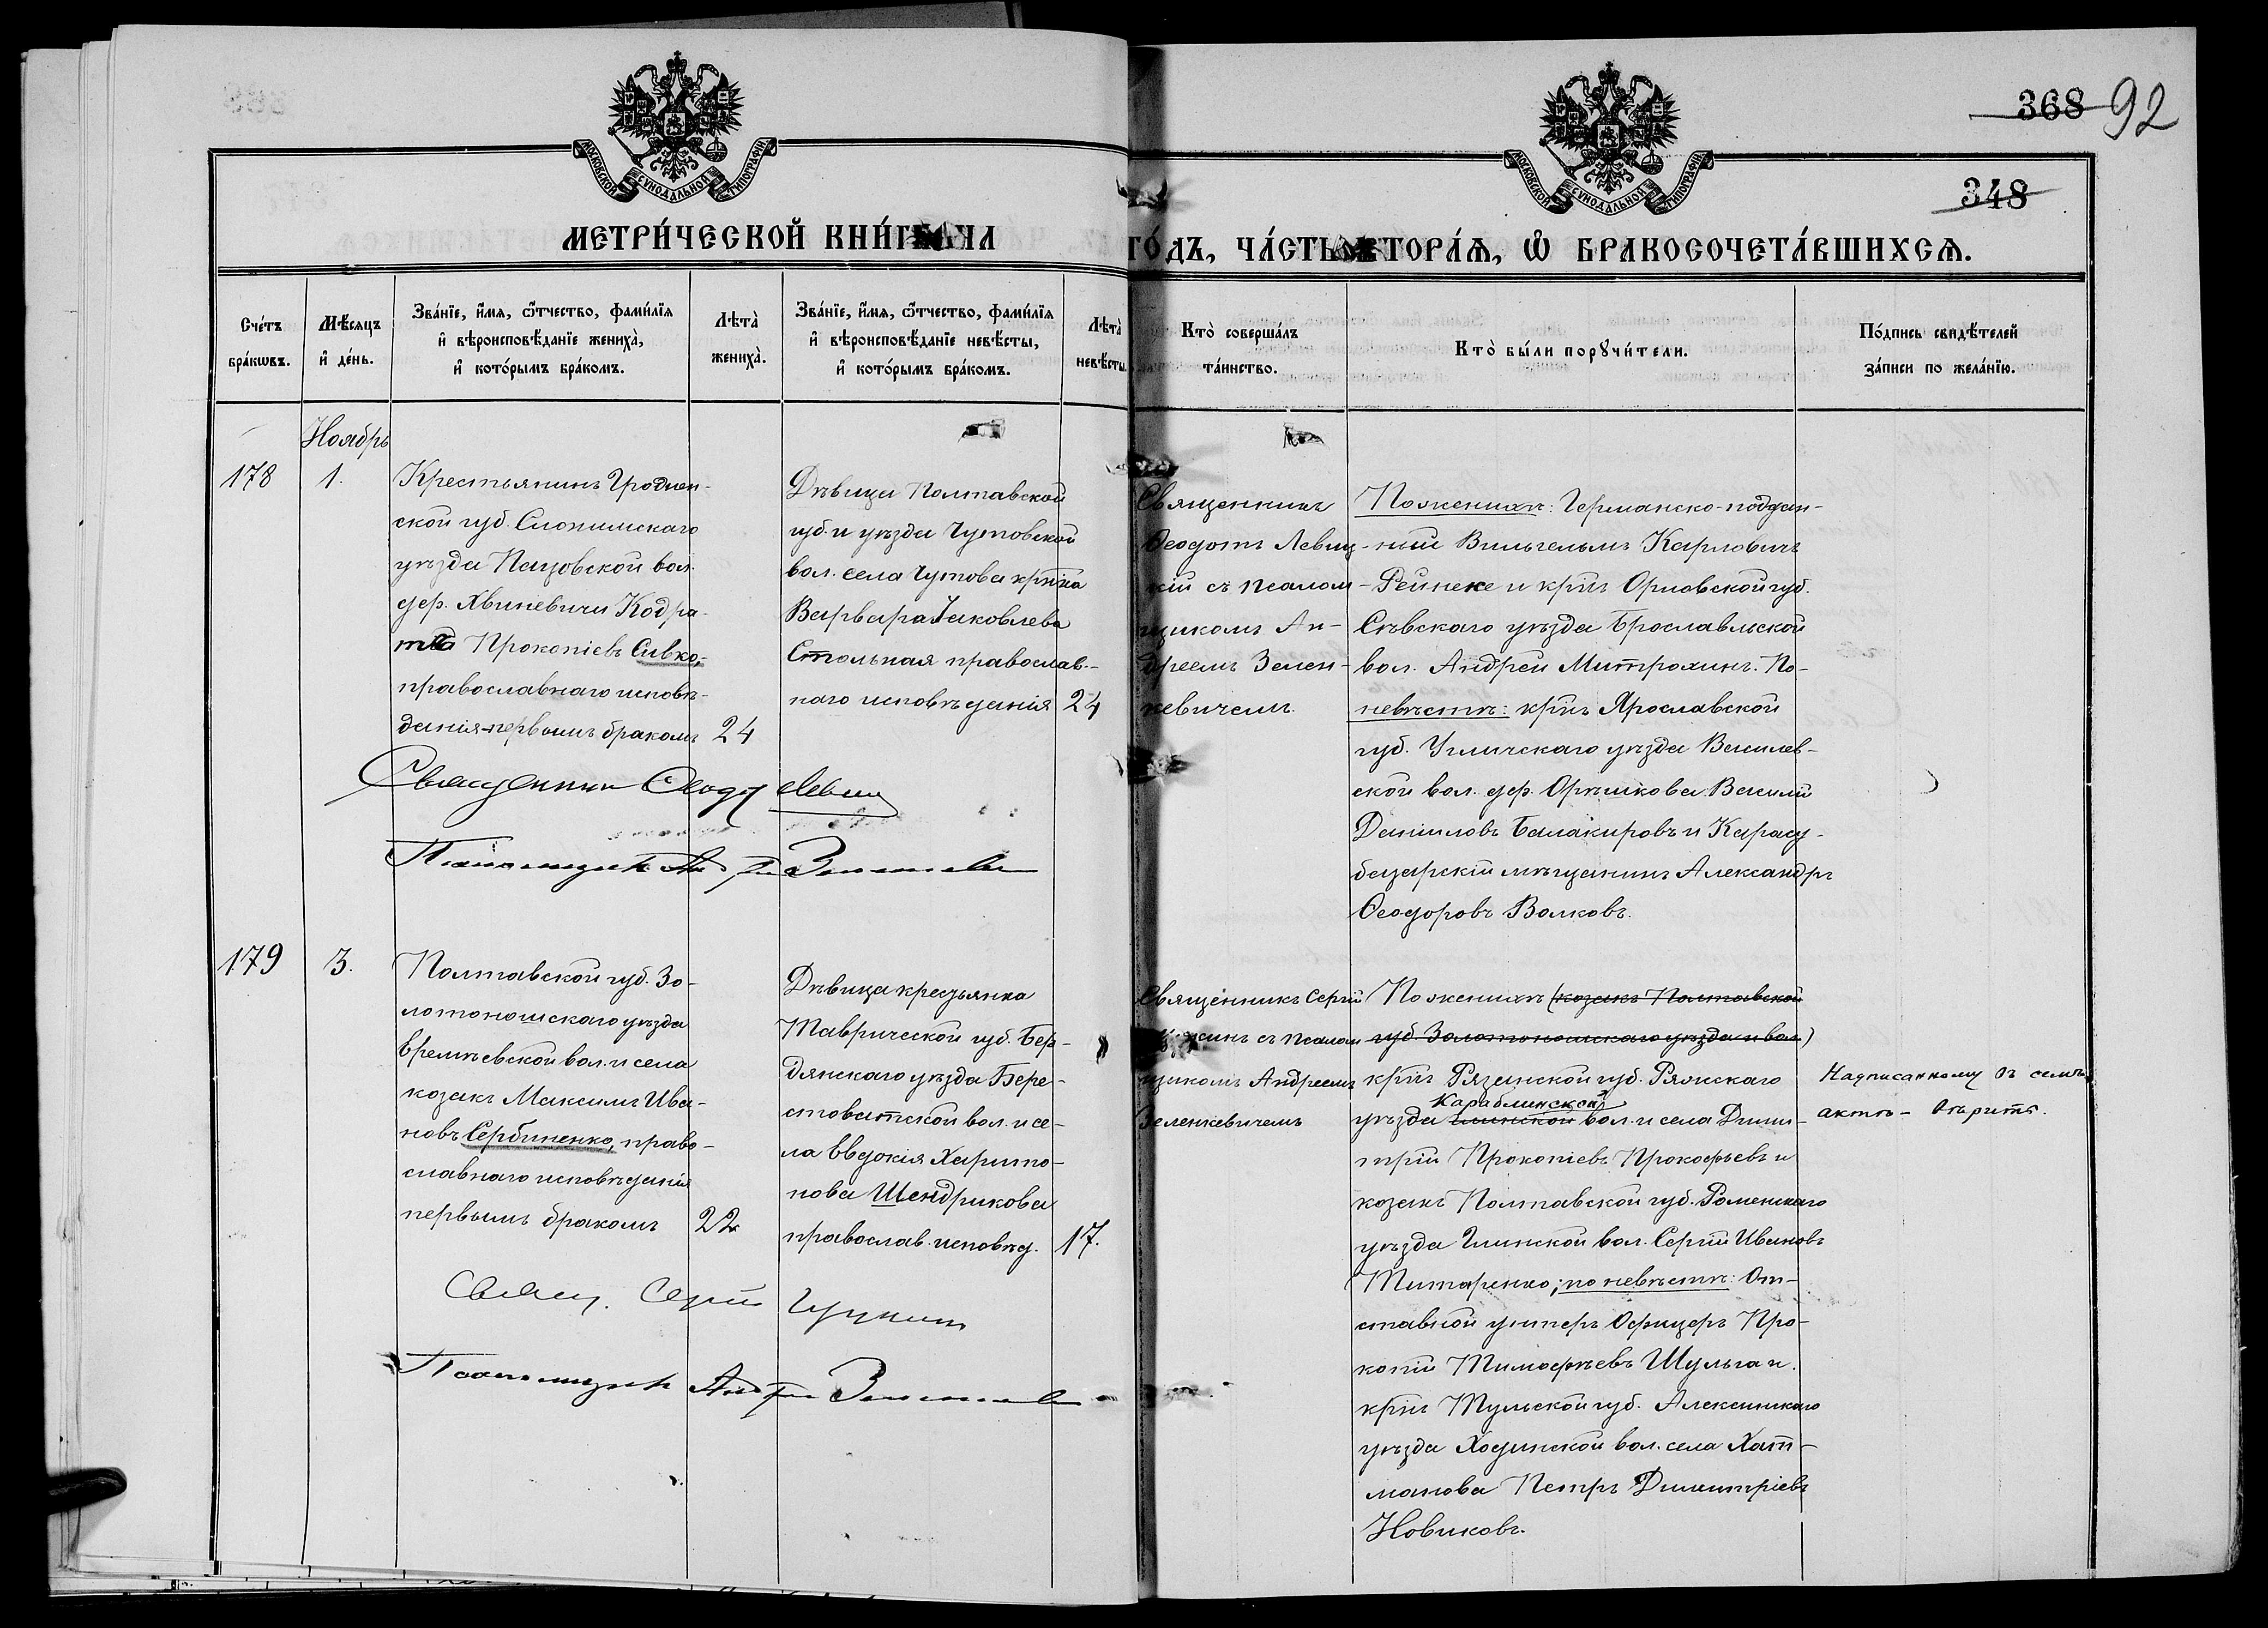 368 92
348
МОСКОВСКОЙ СѴНОДАЛЬНОЙ ТИПОГРАФІИ
МОСКОВСКОЙ СѴНОДАЛЬНОЙ ТИПОГРАФІИ
МЕТРИ́ЧЕСКОЙ КНИ́ГИ НА
ГО́ДЪ, ЧА́СТЬ ВТОРА́Ѧ, Ѽ БРАКОСОЧЕТА́ВШИХСѦ.
Сче́тъ
бра́кѡвъ.
Мѣ́сяцъ
и҆ де́нь.
Зва́нїе, и҆́мѧ, ѻ҆́тчество, фами́лїѧ
и҆ вѣроисповѣ́данїе жениха̀,
и҆ кото́рымъ бра́комъ.
Лѣта̀
жениха̀.
Зва́нїе, и҆́мѧ, ѻ҆́тчество, фами́лїѧ
и҆ вѣроисповѣ́данїе невѣ́сты,
и҆ кото́рымъ бра́комъ.
Лѣта̀
невѣ́сты.
Кто̀ соверша́лъ
та́инство.
Кто̀ бы́ли порꙋчи́тели.
По́дпись свидѣ́телей
за́писи по жела́нїю.
Ноябрь
178
1.
Крестьянинъ Гроднен-
ской губ. Слонимскаго
уѣзда Пацовской вол.
дер. Хвиневичи Кодра-
тъ Прокопіевъ Сивко,
православнаго исповѣ-
данія первымъ бракомъ
24
Дѣвица Полтавской
губ. и уѣзда Чутовской
вол. села Чутова кр\u200bнка
Варвара Іаковлева
Стольная православ-
наго исповѣданія
24
Священникъ
Ѳеодотъ Левиц-
кій съ псалом-
щикомъ Ан-
дреемъ Зелен-
кевичемъ.
По женихѣ: Германско-поддан-
ный Вильгельмъ Карловичъ
Рейнеке и кр\u200bнъ Орловской губ.
Сѣвскаго уѣзда Брославльской
вол. Андрей Митрохинъ. По
невѣстѣ: кр\u200bнъ Ярославской
губ. Угличскаго уѣзда Василев-
ской вол. дер. Орѣшкова Василій
Даниловъ Балакировъ и Карасу-
базарскій мѣщанинъ Александръ
Ѳеодоровъ Волковъ.
Священникъ Ѳеодотъ Левиц
Псаломщикъ Андрей Зеленкеви
179
3.
Полтавской губ. Зо-
лотоношскаго уѣзда
Еремѣевской вол. и села
козакъ Максимъ Ива-
новъ Сербиненко, право-
славнаго исповѣданія
первымъ бракомъ
22
Дѣвица крестьянка
Таврической губ. Бер-
дянскаго уѣзда Бере-
стоватской вол. и се-
ла Евдокія Харито-
нова Шендрикова
православ. исповѣд.
17.
Священникъ Сергій
съ псалом
щикомъ Андреемъ
Зеленкевичемъ
По женихѣ (козакъ Полтавской
губ. Золотоношскаго уѣзда и вол)
кр\u200bнъ Рязанской губ. Ряжскаго
Караблинской
уѣзда глинской вол. и села Дими-
трій Прокопіевъ Прокофьевъ и
козакъ Полтавской губ. Роменскаго
уѣзда Глинской вол. Сергій Ивановъ
Титаренко; по невѣстѣ: От-
ставной унтеръ Офицеръ Про-
копій Тимофѣевъ Шульга и
кр\u200bнъ Тульской губ. Алексинскаго
уѣзда Ходинской вол. села Хат-
манова Петръ Димитріевъ
Новиковъ.
Надписанному въ семъ
актѣ - вѣрить.
Свящ. Сергій
Псаломщикъ Андрей Зеленкеви